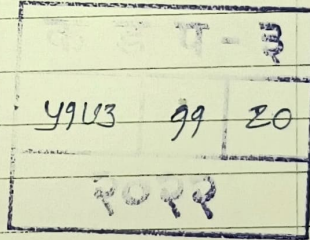 प - ३
५१७३ ११ २०
२०२२